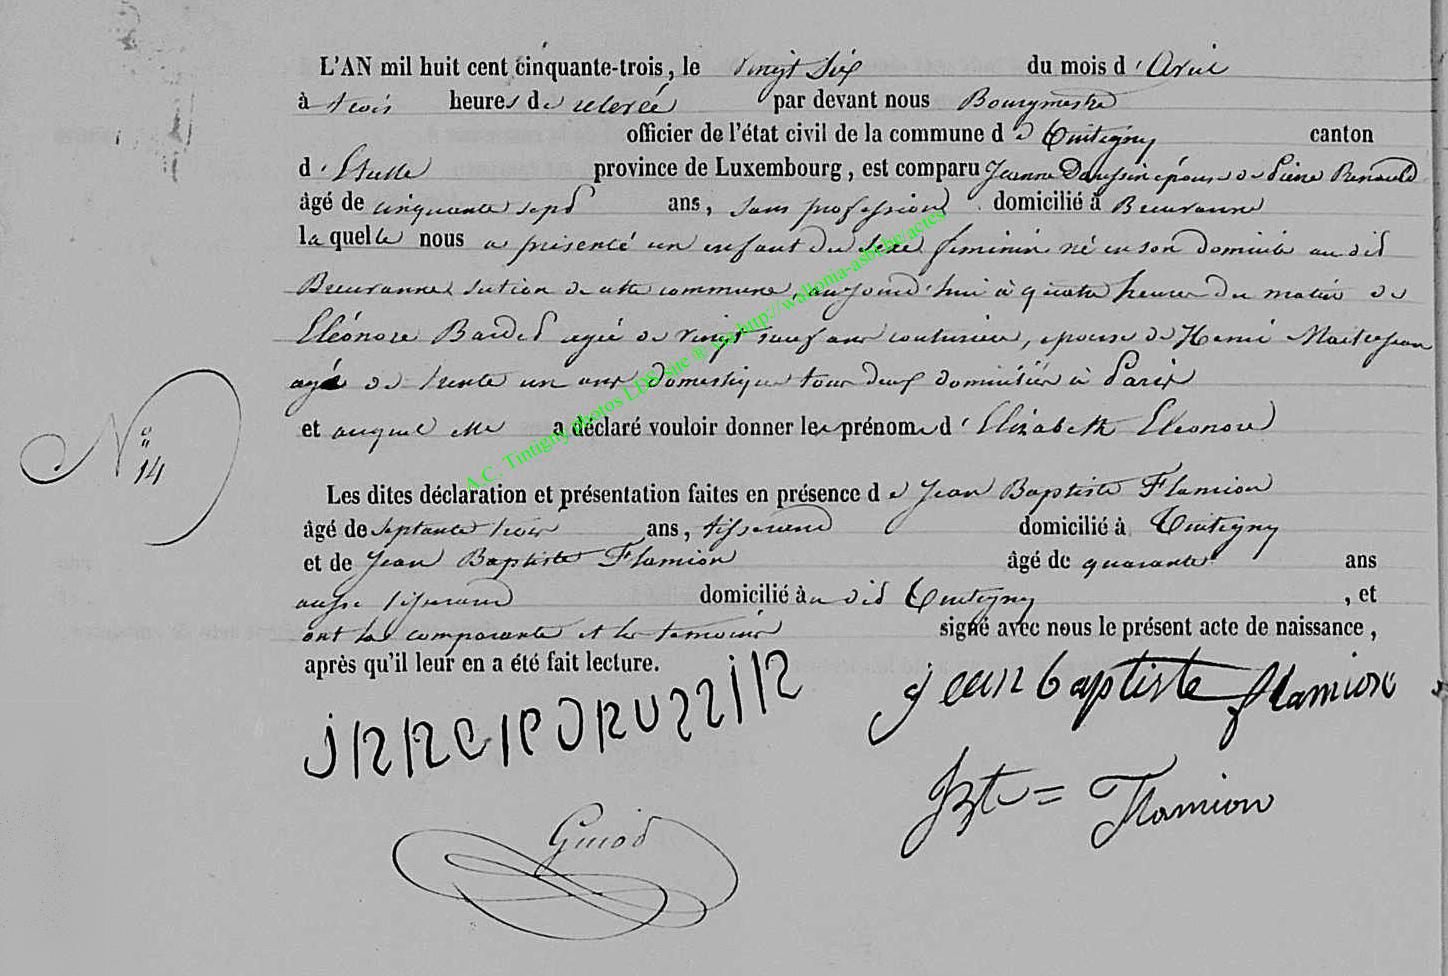 L'AN mil huit cent cinquante-trois, le vingt six du mois d'Avril
à trois heures de relevée par devant nous Bourgmestre
officier de l'état civil de la commune de Tintigny canton
d'Etalle province de Luxembourg, est comparu Jeanne Daussin épouse de Pierre Renauld
âgé de cinquante sept ans, sans profession domicilié à Breuvanne
laquelle nous a présenté un enfant du sexe féminin né en son domicile au dit
Breuvanne section de cette commune, aujourd'hui à quatre heures du matin de
Eléonore Bardel agée de vingt neuf ans couturière, epouse de Henri Maitrejean
agé de trente un ans domestique tous deux domiciliés à Paris
et auquel elle a déclaré vouloir donner les prénoms d'Elizabeth Eléonore
N° 14
Les dites déclaration et présentation faites en présence de Jean Baptiste Flamion
âgé de septante trois ans, tisserand domicilié à Tintigny
et de Jean Baptiste Flamion âgé de quarante ans
aussi tisserand domicilié au dit Tintigny, et
ont la comparante et les temoins signé avec nous le présent acte de naissance,
après qu'il leur en a été fait lecture.
jean baptiste flamion
JBte = Flamion
A.C. Tintigny photos LDS/site ® via http://wallonia-asbl.be/actes